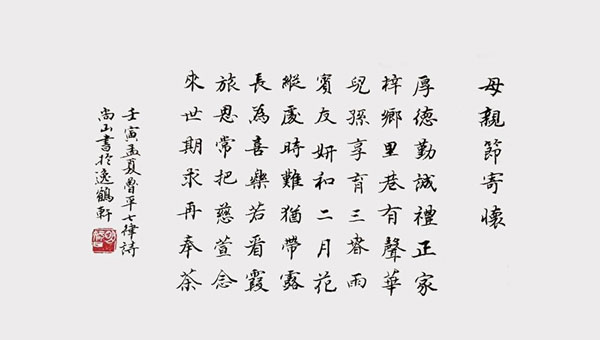 母親節寄懷
厚德勤誠禮正家
梓鄉里巷有聲華
兒孫享育三春雨
賓友妍和二月花
縱處時難猶帶露
長為喜樂若看霞
旅思常把慈萱念
來世期求再奉茶
壬寅孟夏曾平七律詩
尚山書於逸鶴軒